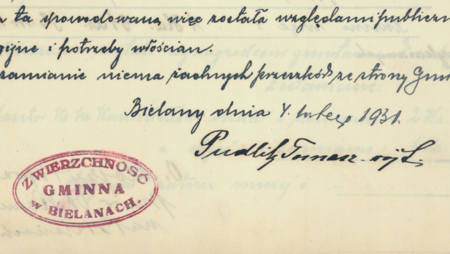 ta spowodowaną więc została względami
i potrzeby włościan.
niema żadnych przeszkód ze strony
Bielany dnia 4 lutego 1931.
Tomasz
ZWIERZCHNOŚĆ
GMINNA
w BIELANACH.